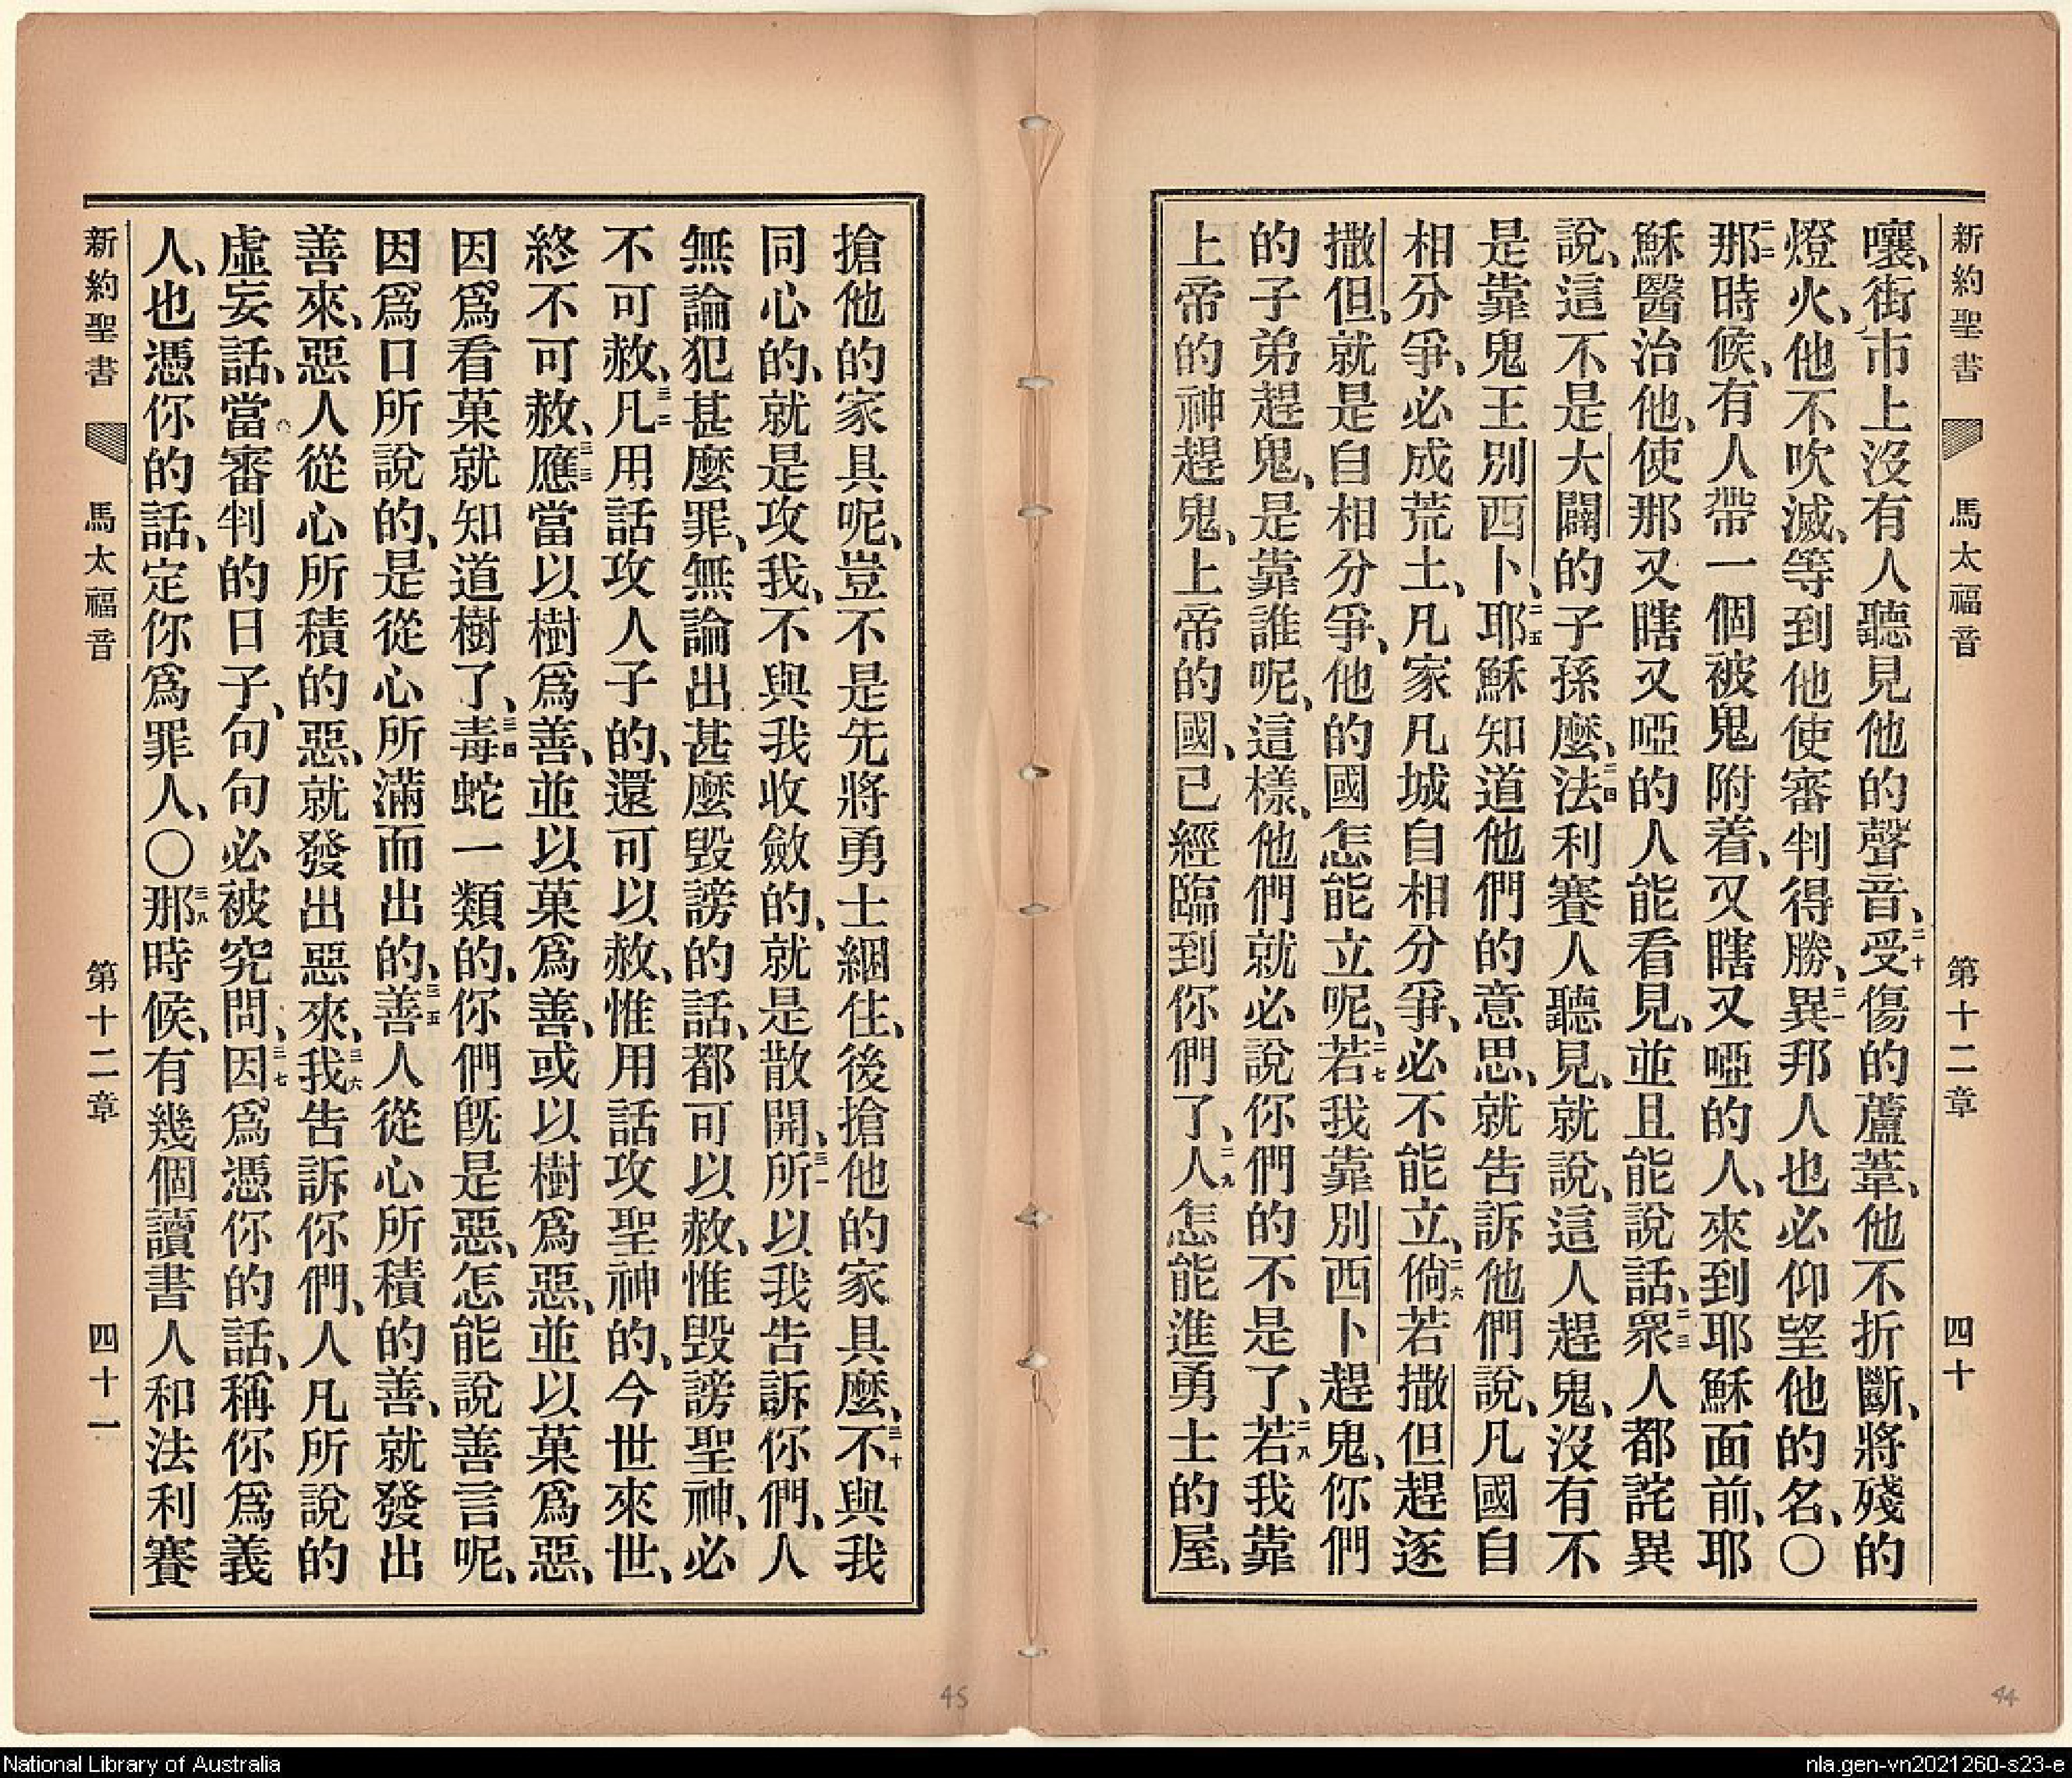 新約聖書 馬太福音 第十二章 四十
嚷、街市上沒有人聽見他的聲音、二十受傷的蘆葦、他不折斷、將殘的
燈火、他不吹滅、等到他使審判得勝、二一異邦人也必仰望他的名、〇
二二那時候、有人帶一個被鬼附着、又瞎又啞的人、來到耶穌面前、耶
穌醫治他、使那又瞎又啞的人能看見、並且能說話、二三眾人都詫異
說、這不是大闢的子孫麼、二四法利賽人聽見、就說、這人趕鬼、沒有不
是靠鬼王別西卜、二五耶穌知道他們的意思、就告訴他們說、凡國自
相分爭、必成荒土、凡家凡城自相分爭、必不能立、二六倘若撒但趕逐
撒但、就是自相分爭、他的國怎能立呢、二七若我靠別西卜趕鬼、你們
的子弟趕鬼、是靠誰呢、這樣、他們就必說你們的不是了、二八若我靠
上帝的神趕鬼、上帝的國、已經臨到你們了、二九人怎能進勇士的屋、
搶他的家具呢、豈不是先將勇士綑住、後搶他的家具麼、三十不與我
同心的、就是攻我、不與我收斂的、就是散開、三一所以我告訴你們、人
無論犯甚麼罪、無論出甚麼毀謗的話、都可以赦、惟毀謗聖神、必
不可赦、三二凡用話攻人子的、還可以赦、惟用話攻聖神的、今世來世、
終不可赦、三三應當以樹爲善、並以菓爲善、或以樹爲惡、並以菓爲惡、
因爲看菓就知道樹了、三四毒蛇一類的、你們旣是惡、怎能說善言呢、
因爲口所說的、是從心所滿而出的、三五善人從心所積的善、就發出
善來、惡人從心所積的惡、就發出惡來、三六我告訴你們、人凡所說的
虛妄話、當審判的日子、句句必被究問、三七因爲憑你的話、稱你爲義
人、也憑你的話、定你爲罪人、〇三八那時候、有幾個讀書人和法利賽
新約聖書 馬太福音 第十二章 四十一
45
44
National Library of Australia
nla.gen-vn2021260-s23-e